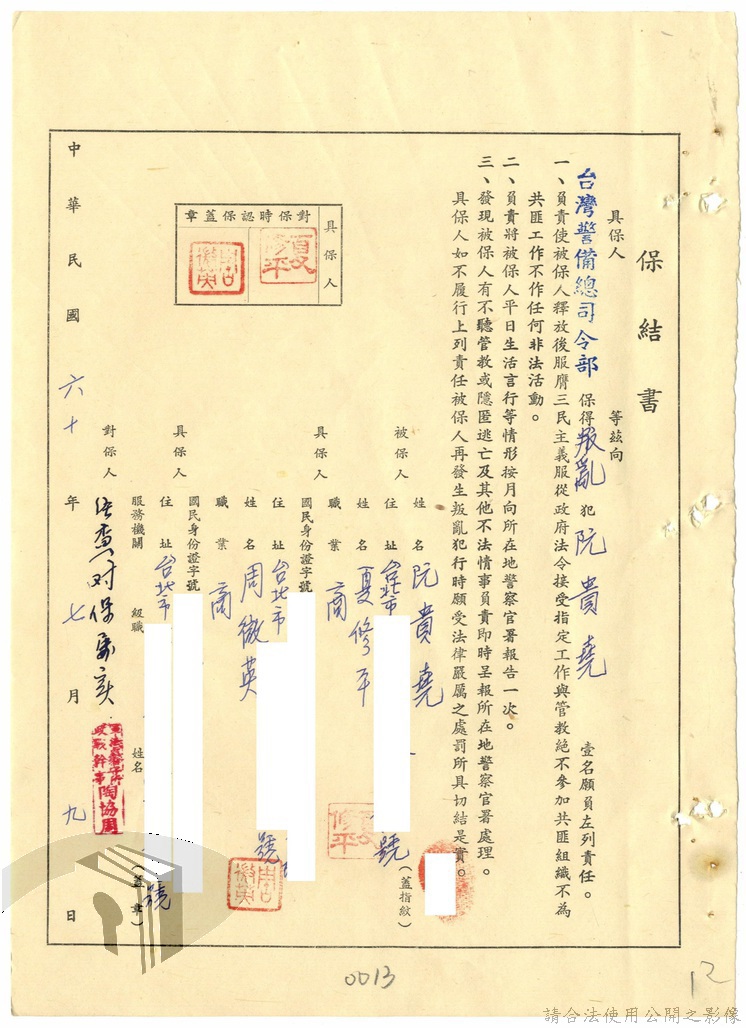 保結書
具保人 等茲向
台灣警備總司令部 保得叛亂犯阮貴堯 壹名願員左列責任。
一、負責使被保人釋放後服膺三民主義服從政府法令接受指定工作與管教絕不參加共匪組織不為
共匪工作不作任何非法活動。
二、負責將被保人平日生活言行等情形按月向所在地警察官署報告一次。
三、發現被保人有不聽管教或隱匿逃亡及其他不法情事負責即時呈報所在地警察官署處理。
具保人如不履行上列責任被保人再發生叛亂犯行時願受法律嚴厲之處罰所具切結是實。
被保人 姓名 阮貴堯
住址 台北市 號 (蓋指紋)
具保人 姓名 夏修平
職業 商
國民身份證字號
住址 台北市 號
具保人 姓名 周徽英
職業 商
國民身份證字號
住址 台北市 號
對保人 服務機關 級職 姓名 (蓋章)
對保時認保蓋章
具保人
夏修平
周徽英
幹事陶協周
中華民國六十年七月九日
0013
12
請合法使用公開之影像